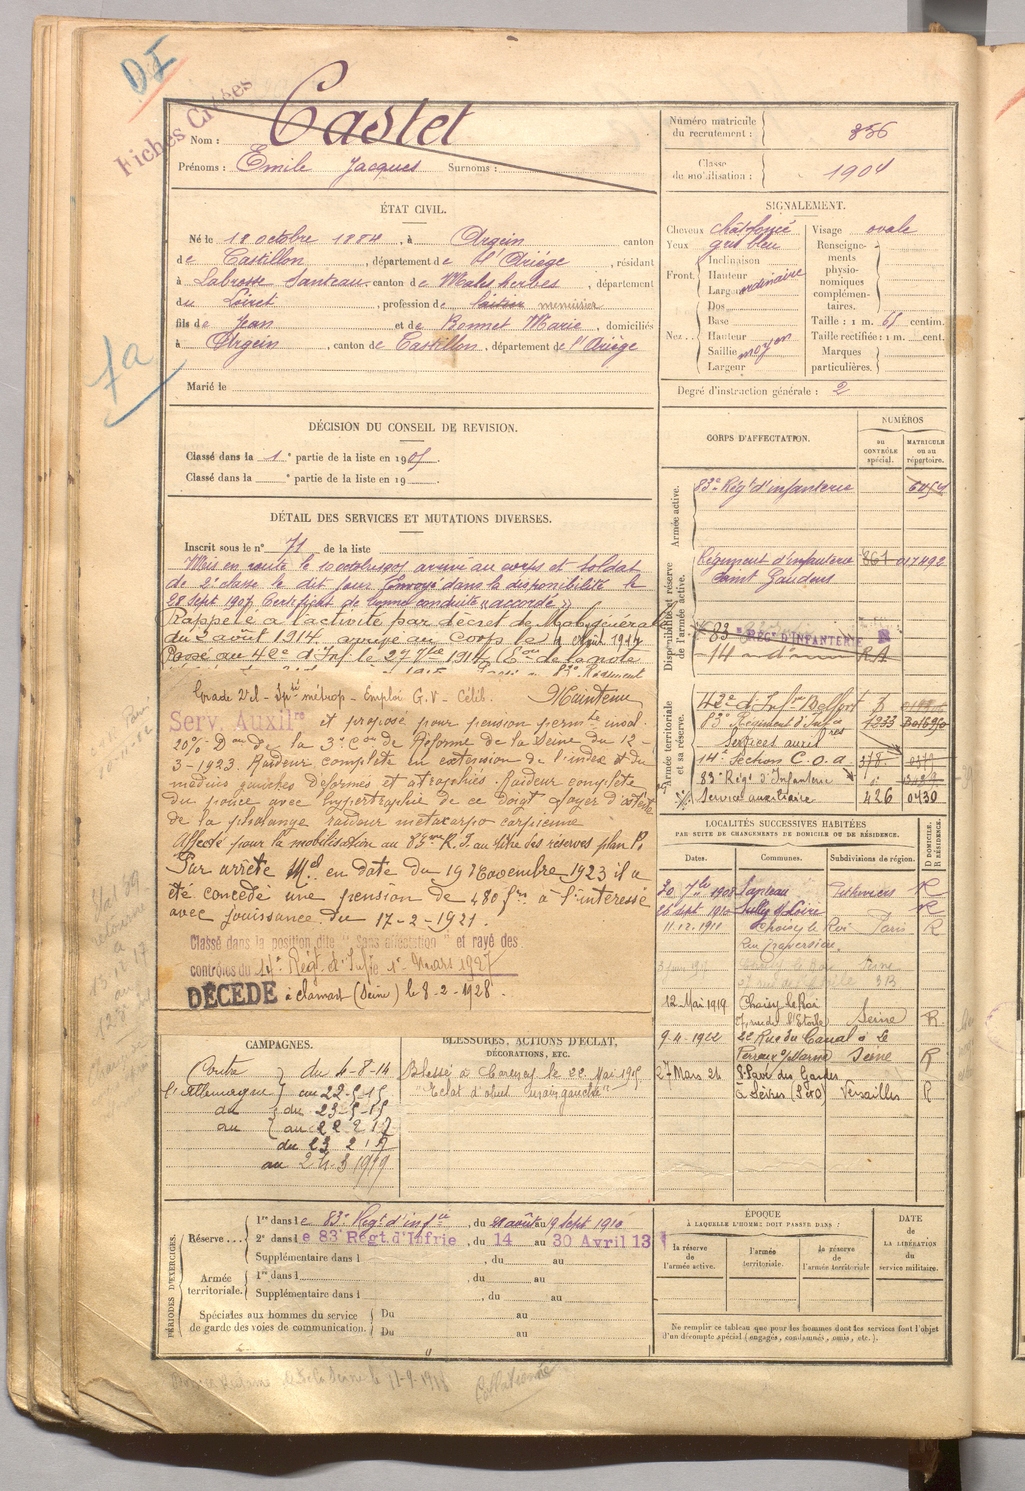 DI
Fiches Croisées
Nom : Castet
Prénoms : Emile Jacques Surnoms :
Numéro matricule du recrutement : 856
Classe de mobilisation : 1904
ÉTAT CIVIL.
Né le 18 octobre 1884, à Argein canton
de Castillon, département de l'Ariège, résidant
à Labrosse canton de Malesherbes, département
du Loiret, profession de laitier menuisier
fils de Jean et de Bonnet Marie, domiciliés
à Argein, canton de Castillon, département de l'Ariège
Marié le
1a
SIGNALEMENT.
Cheveux châtfoncé Visage ovale
Yeux gris bleu
Front. Inclinaison
Hauteur
Largeur ordinaire
Nez.. Dos
Base
Hauteur
Saillie moyen
Largeur
Renseignements physionomiques complémentaires.
Taille : 1 m. 65 centim.
Taille rectifiée : 1 m. cent.
Marques particulières.
Degré d'instruction générale : 2
DÉCISION DU CONSEIL DE REVISION.
Classé dans la 1e partie de la liste en 1905.
Classé dans la e partie de la liste en 19
DÉTAIL DES SERVICES ET MUTATIONS DIVERSES.
Inscrit sous le n° 71 de la liste
Mis en route le 10 octobre 1905 arrivé au corps et soldat
de 2e classe le dit jour. Envoyé dans la disponibilité le
28 Sept 1907 Certificat de bonne conduite "accordé"
Rappelé à l'activité par décret de Mob générale
du 2 août 1914. arrivé au Corps le 4 Août 1914
Passé au 42e d'Inf le 27 1914
Grade 2e cl - métrop - Emploi G.V - Célib. Maintenu
Serv. Auxilre et proposé pour pension permte inval.
20% Don de la 3e Con de Réforme de la Seine du 12-
3-1923. Raideur complète en extension de l'index et du
médius gauches déformés et atrophiés. Raideur complète
du pouce avec hypertrophie de ce doigt, foyer d'ostéite
de la phalange raideur métacarpo carpienne
Affecté pour la mobilisation au R.I. au titre des réserves plan P.
Par arrêté Mel en date du 19 Novembre 1923 il a
été concédé une pension de 480 frs à l'intéressé
avec jouissance du 17-2-1921.
Classé dans la position dite "Sans affectation" et rayé des
contrôles du Régt. d'Infie 1er Mars 1927
DÉCÉDÉ à Clamart (Seine) le 8-2-1928.
CORPS D'AFFECTATION.
NUMÉROS
AU CONTRÔLE spécial.
MATRICULE ou au répertoire.
Armée active.
83e Régt d'infanterie
Disponibilité et réserve de l'armée active.
Régiment d'infanterie 861 017492
Saint Gaudens
83e REGt D'INFANTERIE
14 d° RA
Armée territoriale et sa réserve.
42e d'Inf Belfort
83e Régiment d'Infrie 1233
Services auxil
14e Section C.O.A.
83e Régt d'Infanterie
Service auxiliaire 426 0430
LOCALITÉS SUCCESSIVES HABITÉES
PAR SUITE DE CHANGEMENTS DE DOMICILE OU DE RÉSIDENCE.
Dates. Communes. Subdivisions de région. D DOMICILE. R RÉSIDENCE.
20 7bre 1908 Santeau Pithiviers R
26 sept 1910 Sully s/Loire R
11.12.1911 Choisy le Roi Paris R
12 Mai 1919 Choisy le Roi
7, rue de l'Etoile Seine R
9.4.1922 Rue du Canal à Le
Perreux s/Marne Seine R
27 Mars 24 des Gardes
à Sèvres (S&O) Versailles R
CAMPAGNES.
Contre du 4-8-14
l'Allemagne au 22-5-15
du du 23-5-15
au au 22 2 17
du 23 2 17
au 24 3 1919
BLESSURES, ACTIONS D'ÉCLAT,
DÉCORATIONS, ETC.
Blessé à Carency le 22 Mai 1915
"Eclat d'obus main gauche"
PÉRIODES D'EXERCICES.
Réserve... 1re dans le 83e Régt d'infrie, du 21 août au 9 Sept 1910
2e dans le 83e Régt. d'Infrie, du 14 au 30 Avril 13
Supplémentaire dans l , du au
Armée territoriale. 1re dans l , du au
Supplémentaire dans l , du au
Spéciales aux hommes du service de garde des voies de communication. Du au
Du au
ÉPOQUE
À LAQUELLE L'HOMME DOIT PASSER DANS :
la réserve de l'armée active.
l'armée territoriale.
la réserve de l'armée territoriale
DATE de LA LIBÉRATION du service militaire.
Ne remplir ce tableau que pour les hommes dont les services font l'objet
d'un décompte spécial (engagés, condamnés, omis, etc.).